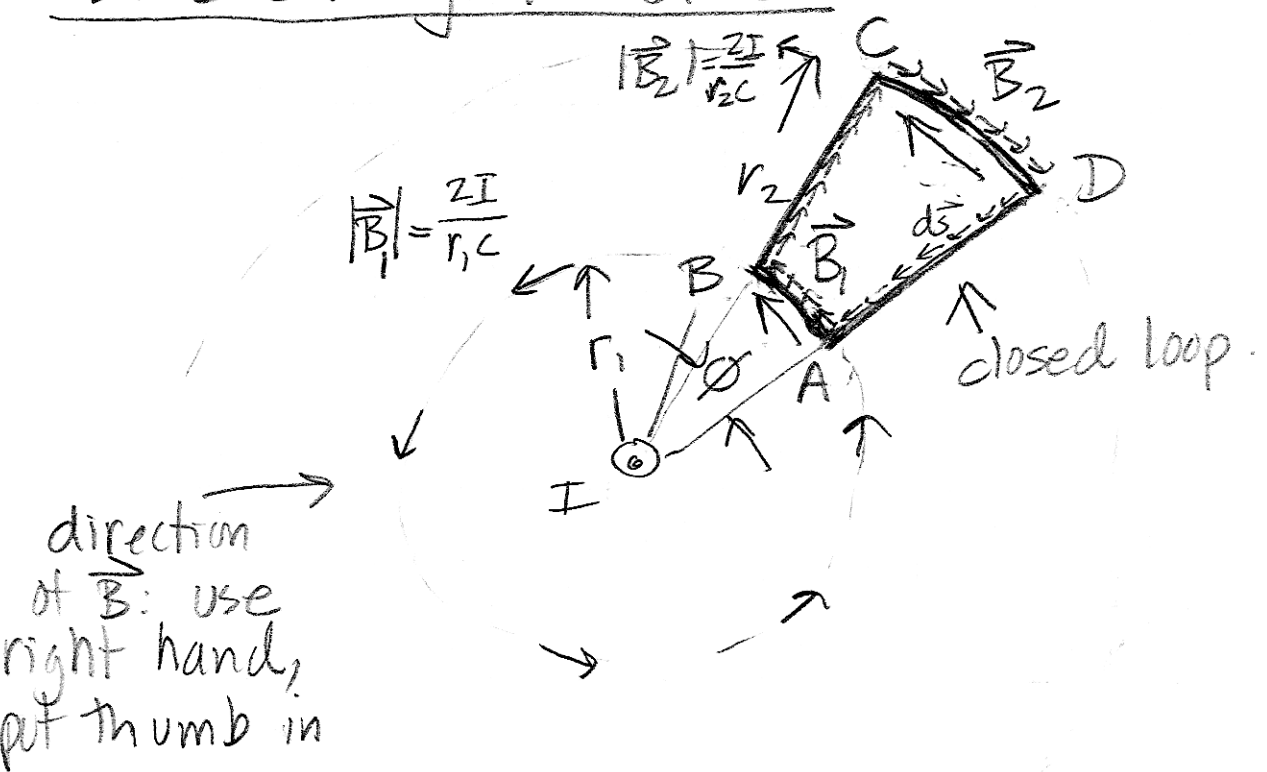 |B⃗₂| = 2I/r₂c
C
B⃗₂
D
r₂
|B⃗₁| = 2I/r₁c
ds⃗
B
B⃗₁
r₁
Ø
A
closed loop.
I
direction
of B⃗: use
right hand,
put thumb in